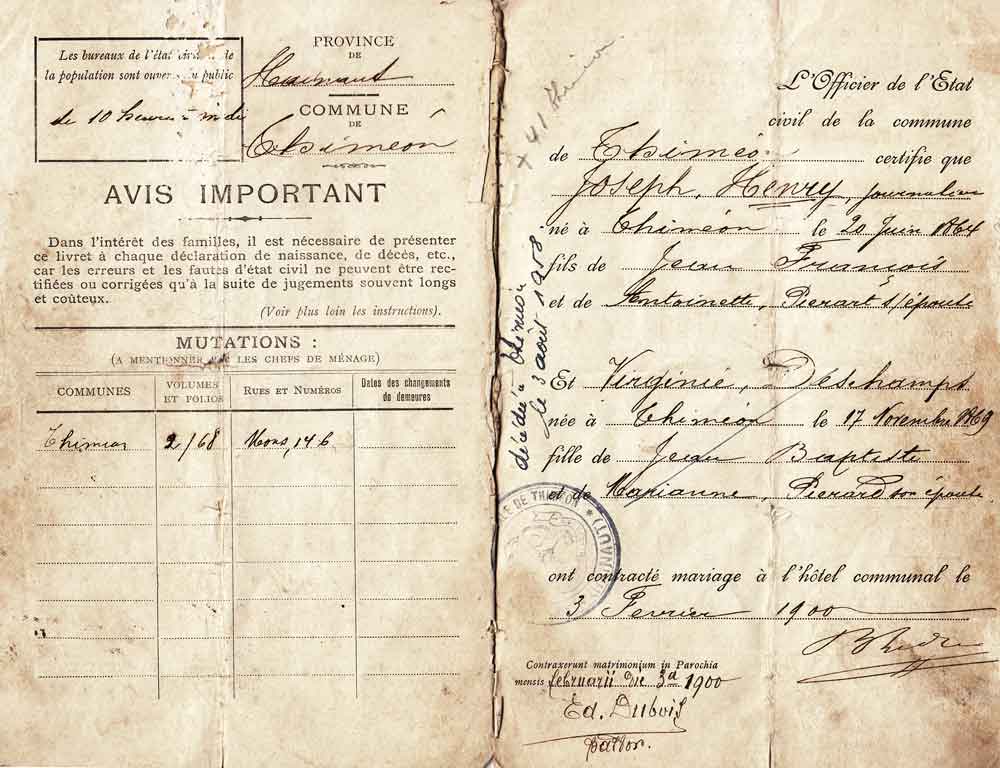 Les bureaux de l'état civil de
la population sont ouverts au public
de 10 heures à midi
PROVINCE
DE
Hainaut
COMMUNE
DE
Thiméon
AVIS IMPORTANT
Dans l'intérêt des familles, il est nécessaire de présenter
ce livret à chaque déclaration de naissance, de décès, etc.,
car les erreurs et les fautes d'état civil ne peuvent être rec-
tifiées ou corrigées qu'à la suite de jugements souvent longs
et coûteux.
(Voir plus loin les instructions).
MUTATIONS :
(A MENTIONNER PAR LES CHEFS DE MÉNAGE)
COMMUNES VOLUMES ET FOLIOS RUES ET NUMÉROS Dates des changements de demeures
Thiméon 2/68 Mons, 146
+ 41 Thiméon
L'Officier de l'Etat
civil de la commune
de Thiméo certifie que
Joseph, Henry, journalier
né à Thiméon le 20 Juin 1864
fils de Jean François
et de Antoinette, Pierart s/épouse
décédée à Thiméon
le 3 août 1908
Et Virginie, Deschamps
née à Thiméon le 17 Novembre 1869
fille de Jean Baptiste
et de Marianne, Pierard son épouse
DE THIMÉON * (HAINAUT)
ont contracté mariage à l'hôtel communal le
3 Fevrier 1900
Contraxerunt matrimonium in Parochia
mensis februarii die 3a 1900
Ed. Dubois
pastor.